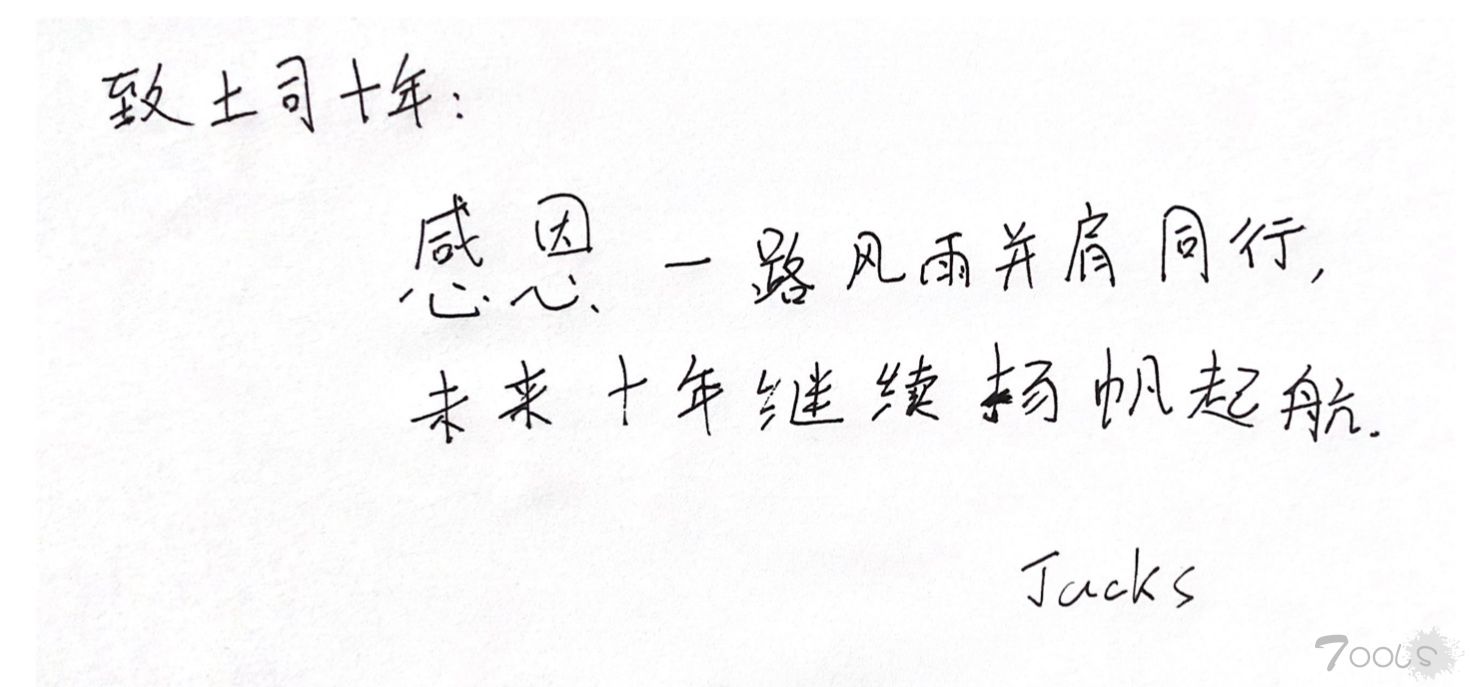 致土司十年:
感恩一路风雨并肩同行,
未来十年继续扬帆起航.
Jacks
7ools